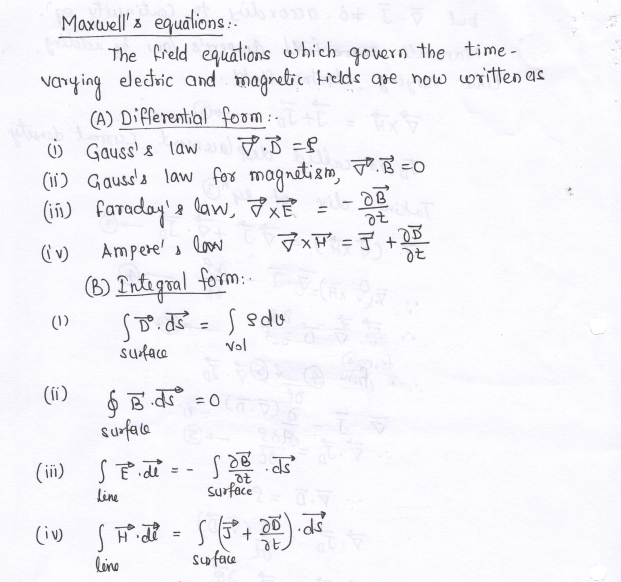 Maxwell's equations:-
The field equations which govern the time-
varying electric and magnetic fields are now written as
(A) Differential form:-
(i) Gauss's law ∇⃗.D⃗ = ρ
(ii) Gauss's law for magnetism, ∇⃗.B⃗ = 0
(iii) Faraday's law, ∇⃗×E⃗ = - ∂B⃗/∂t
(iv) Ampere's law ∇⃗×H⃗ = J⃗ + ∂D⃗/∂t
(B) Integral form:-
(i) ∫ D⃗.ds⃗ = ∫ ρdv
surface vol
(ii) ∮ B⃗.ds⃗ = 0
surface
(iii) ∫ E⃗.dl⃗ = - ∫ ∂B⃗/∂t .ds⃗
line surface
(iv) ∫ H⃗.dl⃗ = ∫ (J⃗ + ∂D⃗/∂t).ds⃗
line surface